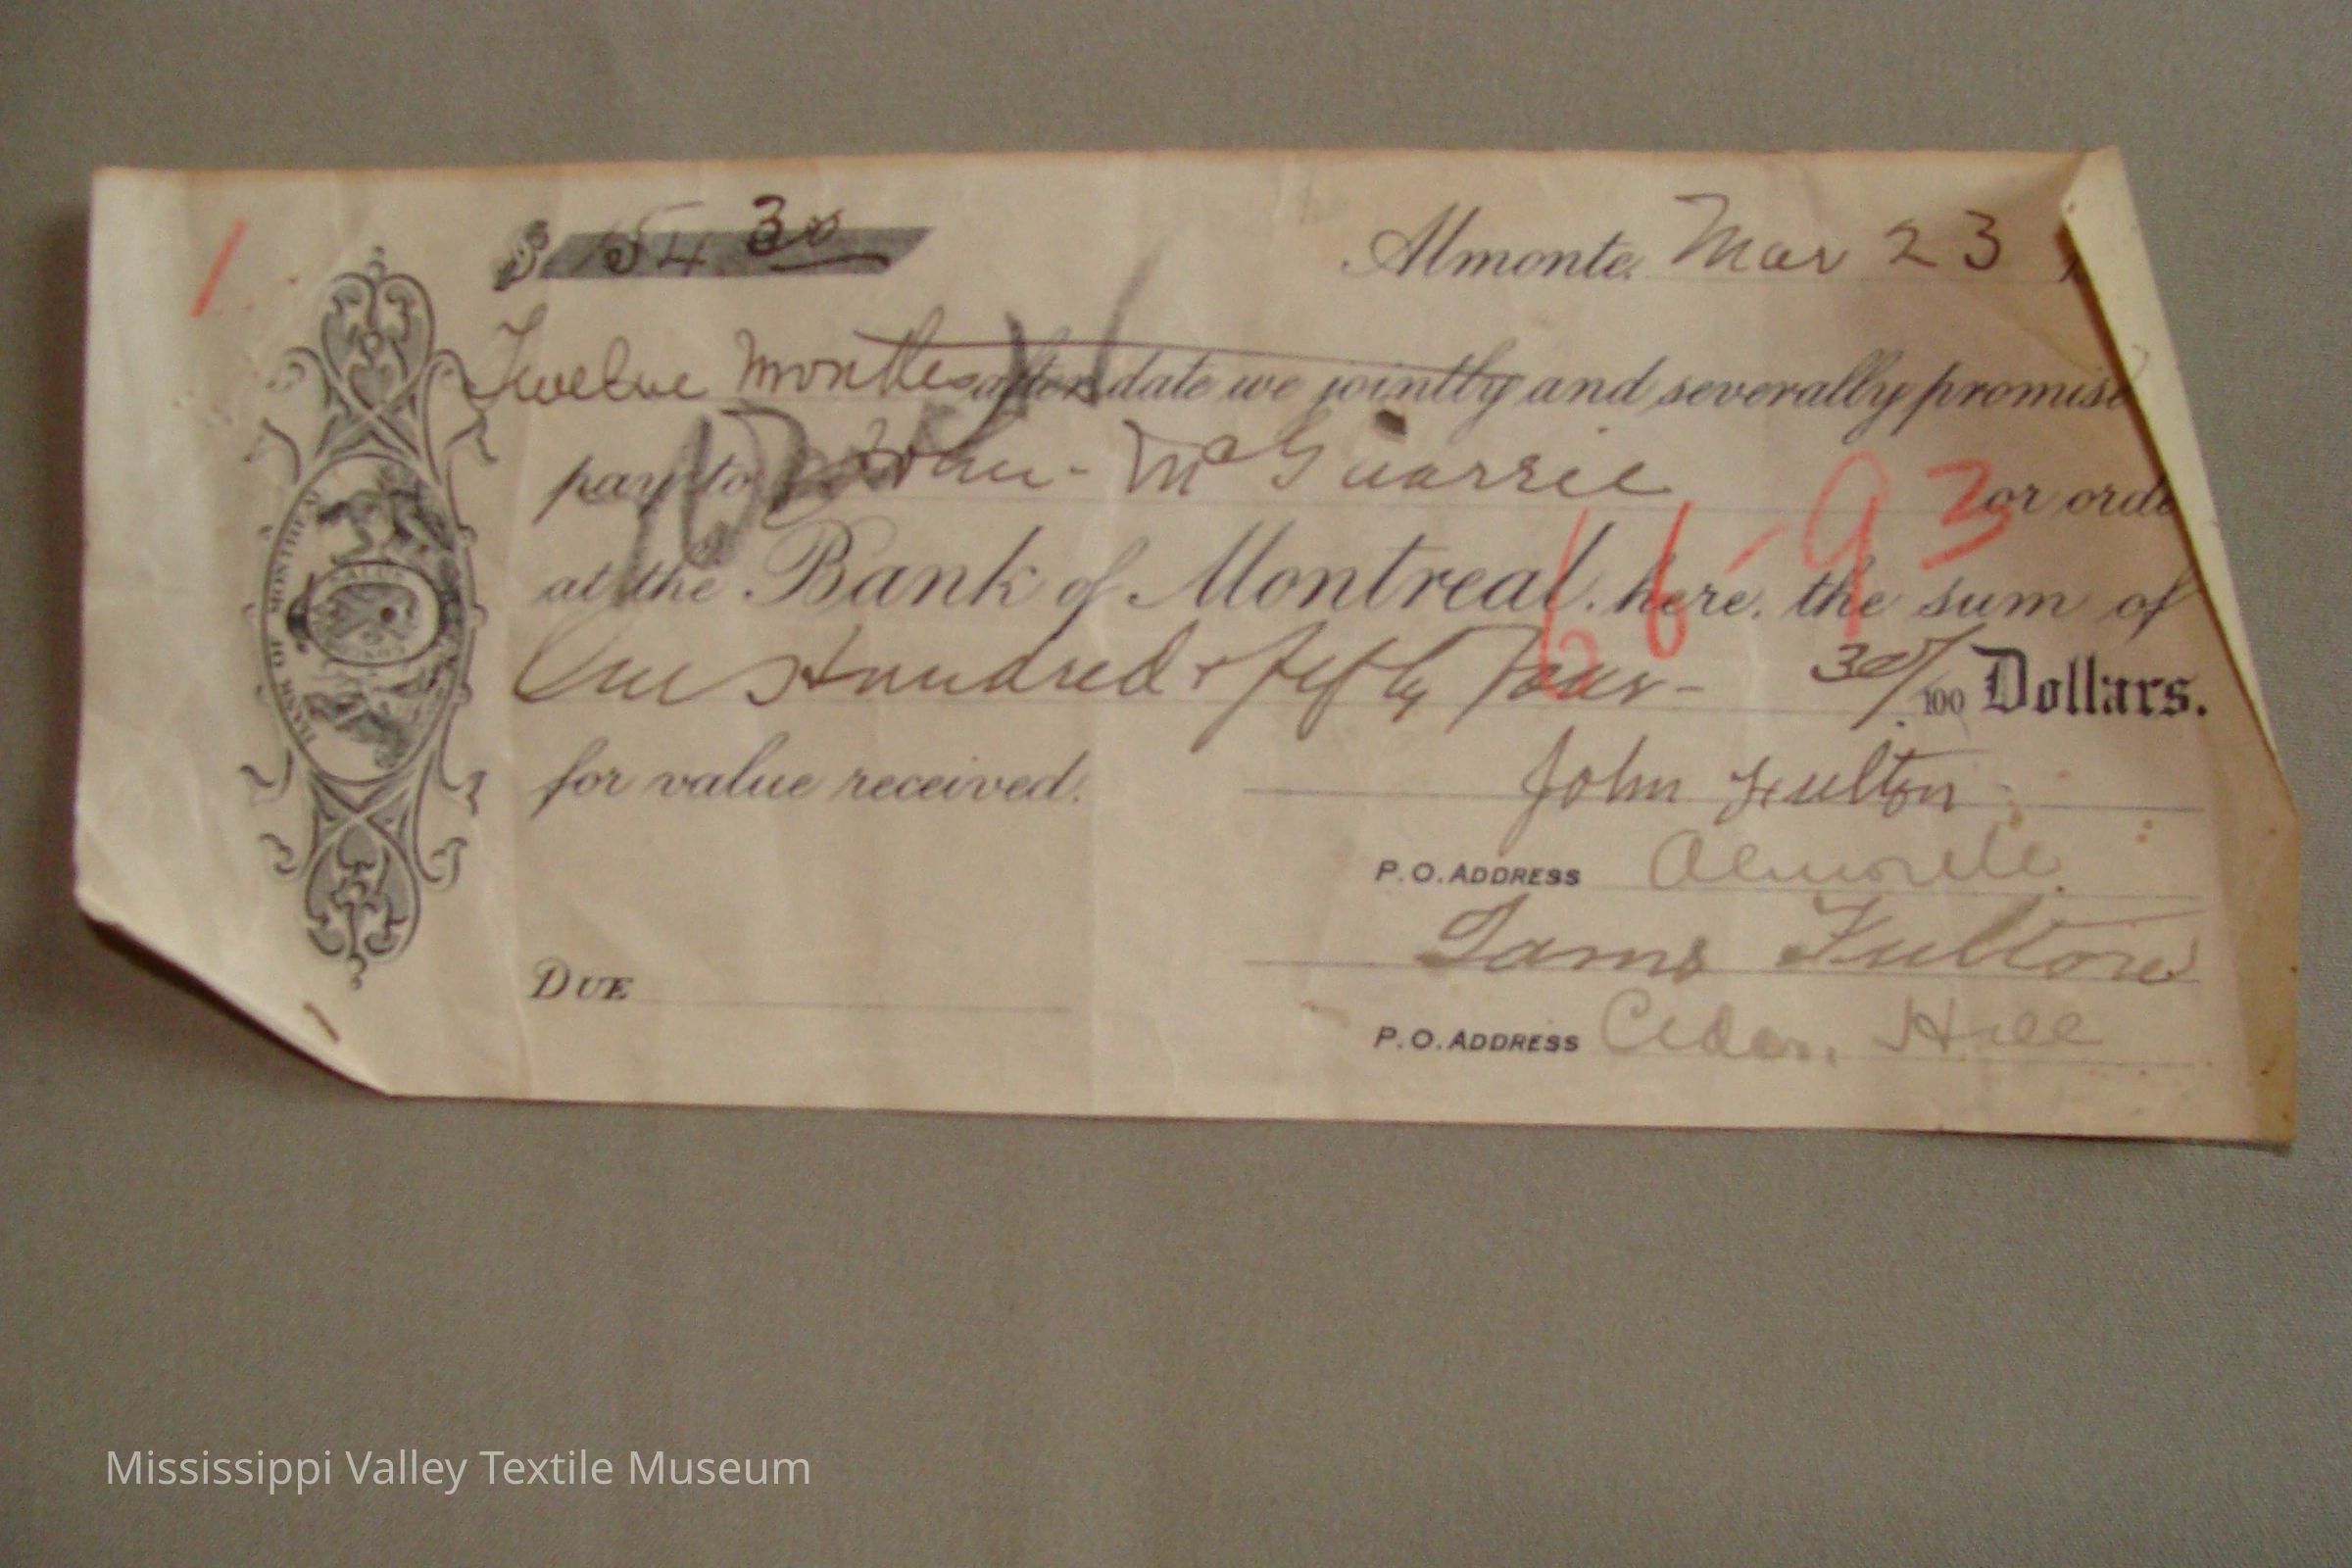 1
$ 154 30
Almonte, Mar 23
Twelve Months after date we jointly and severally promise
pay to John McGuarrie or orde
66-93
at the Bank of Montreal, here, the sum of
One Hundred & fifty Four - 30/100 Dollars.
for value received.
John Fulton
P.O. ADDRESS Almonte
James Fulton
DUE
P.O. ADDRESS Cedar Hill
BANK OF MONTREAL
Mississippi Valley Textile Museum